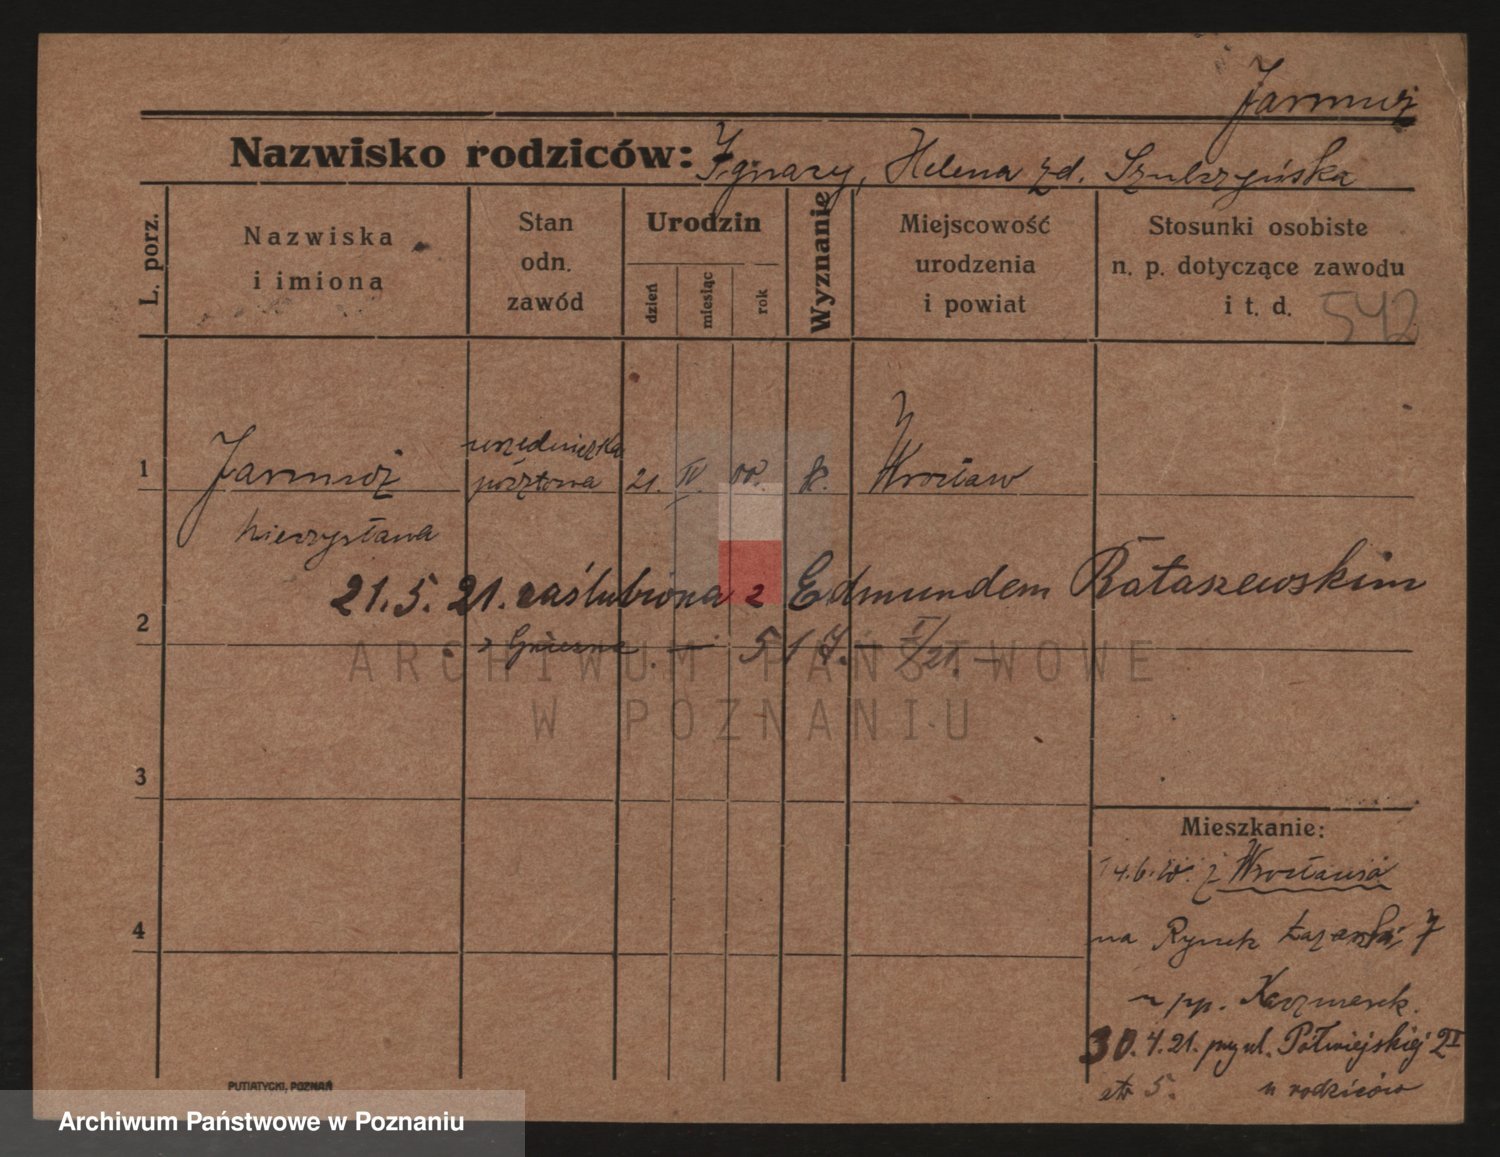 Jarmuż
Nazwisko rodziców: Ignacy, Helena zd. Szulczyńska
L. porz.
Nazwiska
i imiona
Stan
odn.
zawód
Urodzin
dzień
miesiąc
rok
Wyznanie
Miejscowość
urodzenia
i powiat
Stosunki osobiste
n. p. dotyczące zawodu
i t. d.
542
1 Jarmuż urzędniczka
pocztowa 21. IV. 00. k. Wrocław
Mieczysława
21.5.21. zaślubiona z Edmundem Rataszewskim
2
z Gniezna. — 517. — /21. —
ARCHIWUM PAŃSTWOWE
W POZNANIU
3
Mieszkanie:
4.6. z Wrocławia
4
na Rynek Łazarski 7
u pp. Kaczmarek.
30.4.21. przy ul. Półwiejskiej 2
str 5. u rodziców
PUTIATYCKI, POZNAŃ
Archiwum Państwowe w Poznaniu